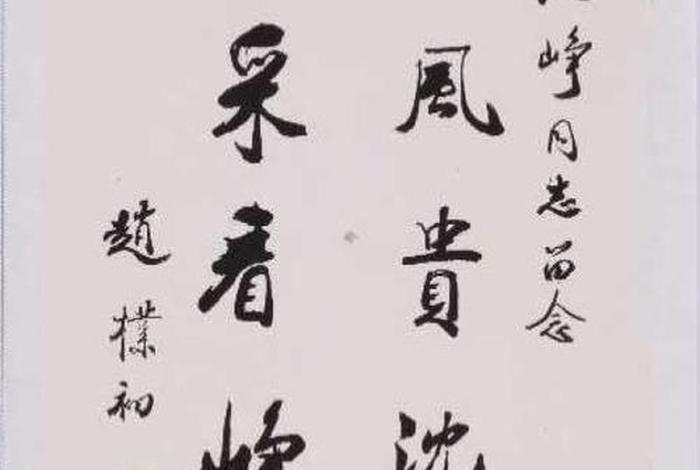 峥同志留念
風貴沈
采看峥
趙樸初